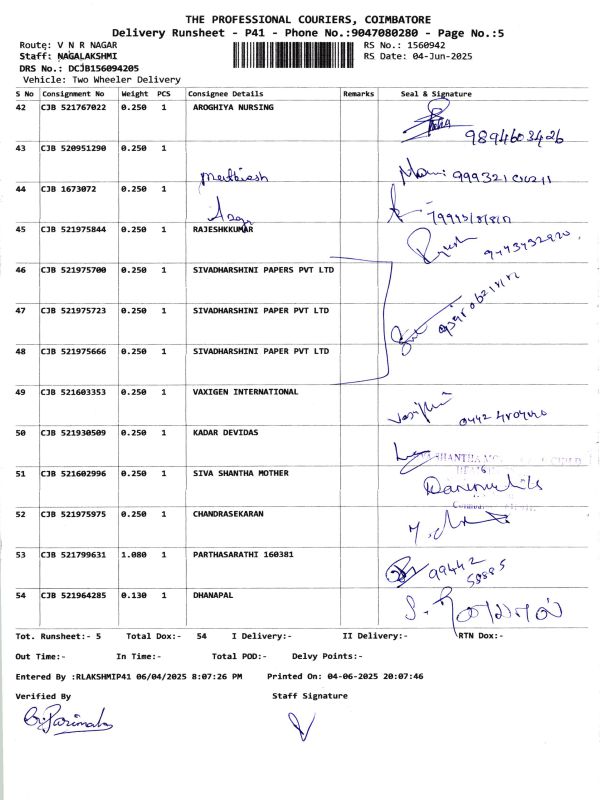 THE PROFESSIONAL COURIERS, COIMBATORE
Delivery Runsheet - P41 - Phone No.:9047080280 - Page No.:5
Route: V N R NAGAR
RS No.: 1560942
Staff: NAGALAKSHMI
RS Date: 04-Jun-2025
DRS No.: DCJB156094205
Vehicle: Two Wheeler Delivery
S No Consignment No Weight PCS Consignee Details Remarks Seal & Signature
42 CJB 521767022 0.250 1 AROGHIYA NURSING
9894603426
43 CJB 520951290 0.250 1
44 CJB 1673072 0.250 1
45 CJB 521975844 0.250 1 RAJESHKKUMAR
46 CJB 521975700 0.250 1 SIVADHARSHINI PAPERS PVT LTD
47 CJB 521975723 0.250 1 SIVADHARSHINI PAPER PVT LTD
48 CJB 521975666 0.250 1 SIVADHARSHINI PAPER PVT LTD
49 CJB 521603353 0.250 1 VAXIGEN INTERNATIONAL
50 CJB 521930509 0.250 1 KADAR DEVIDAS
51 CJB 521602996 0.250 1 SIVA SHANTHA MOTHER
52 CJB 521975975 0.250 1 CHANDRASEKARAN
53 CJB 521799631 1.080 1 PARTHASARATHI 160381
99442
55885
54 CJB 521964285 0.130 1 DHANAPAL
Tot. Runsheet:- 5 Total Dox:- 54 I Delivery:- II Delivery:- RTN Dox:-
Out Time:- In Time:- Total POD:- Delvy Points:-
Entered By :RLAKSHMIP41 06/04/2025 8:07:26 PM Printed On: 04-06-2025 20:07:46
Verified By Staff Signature